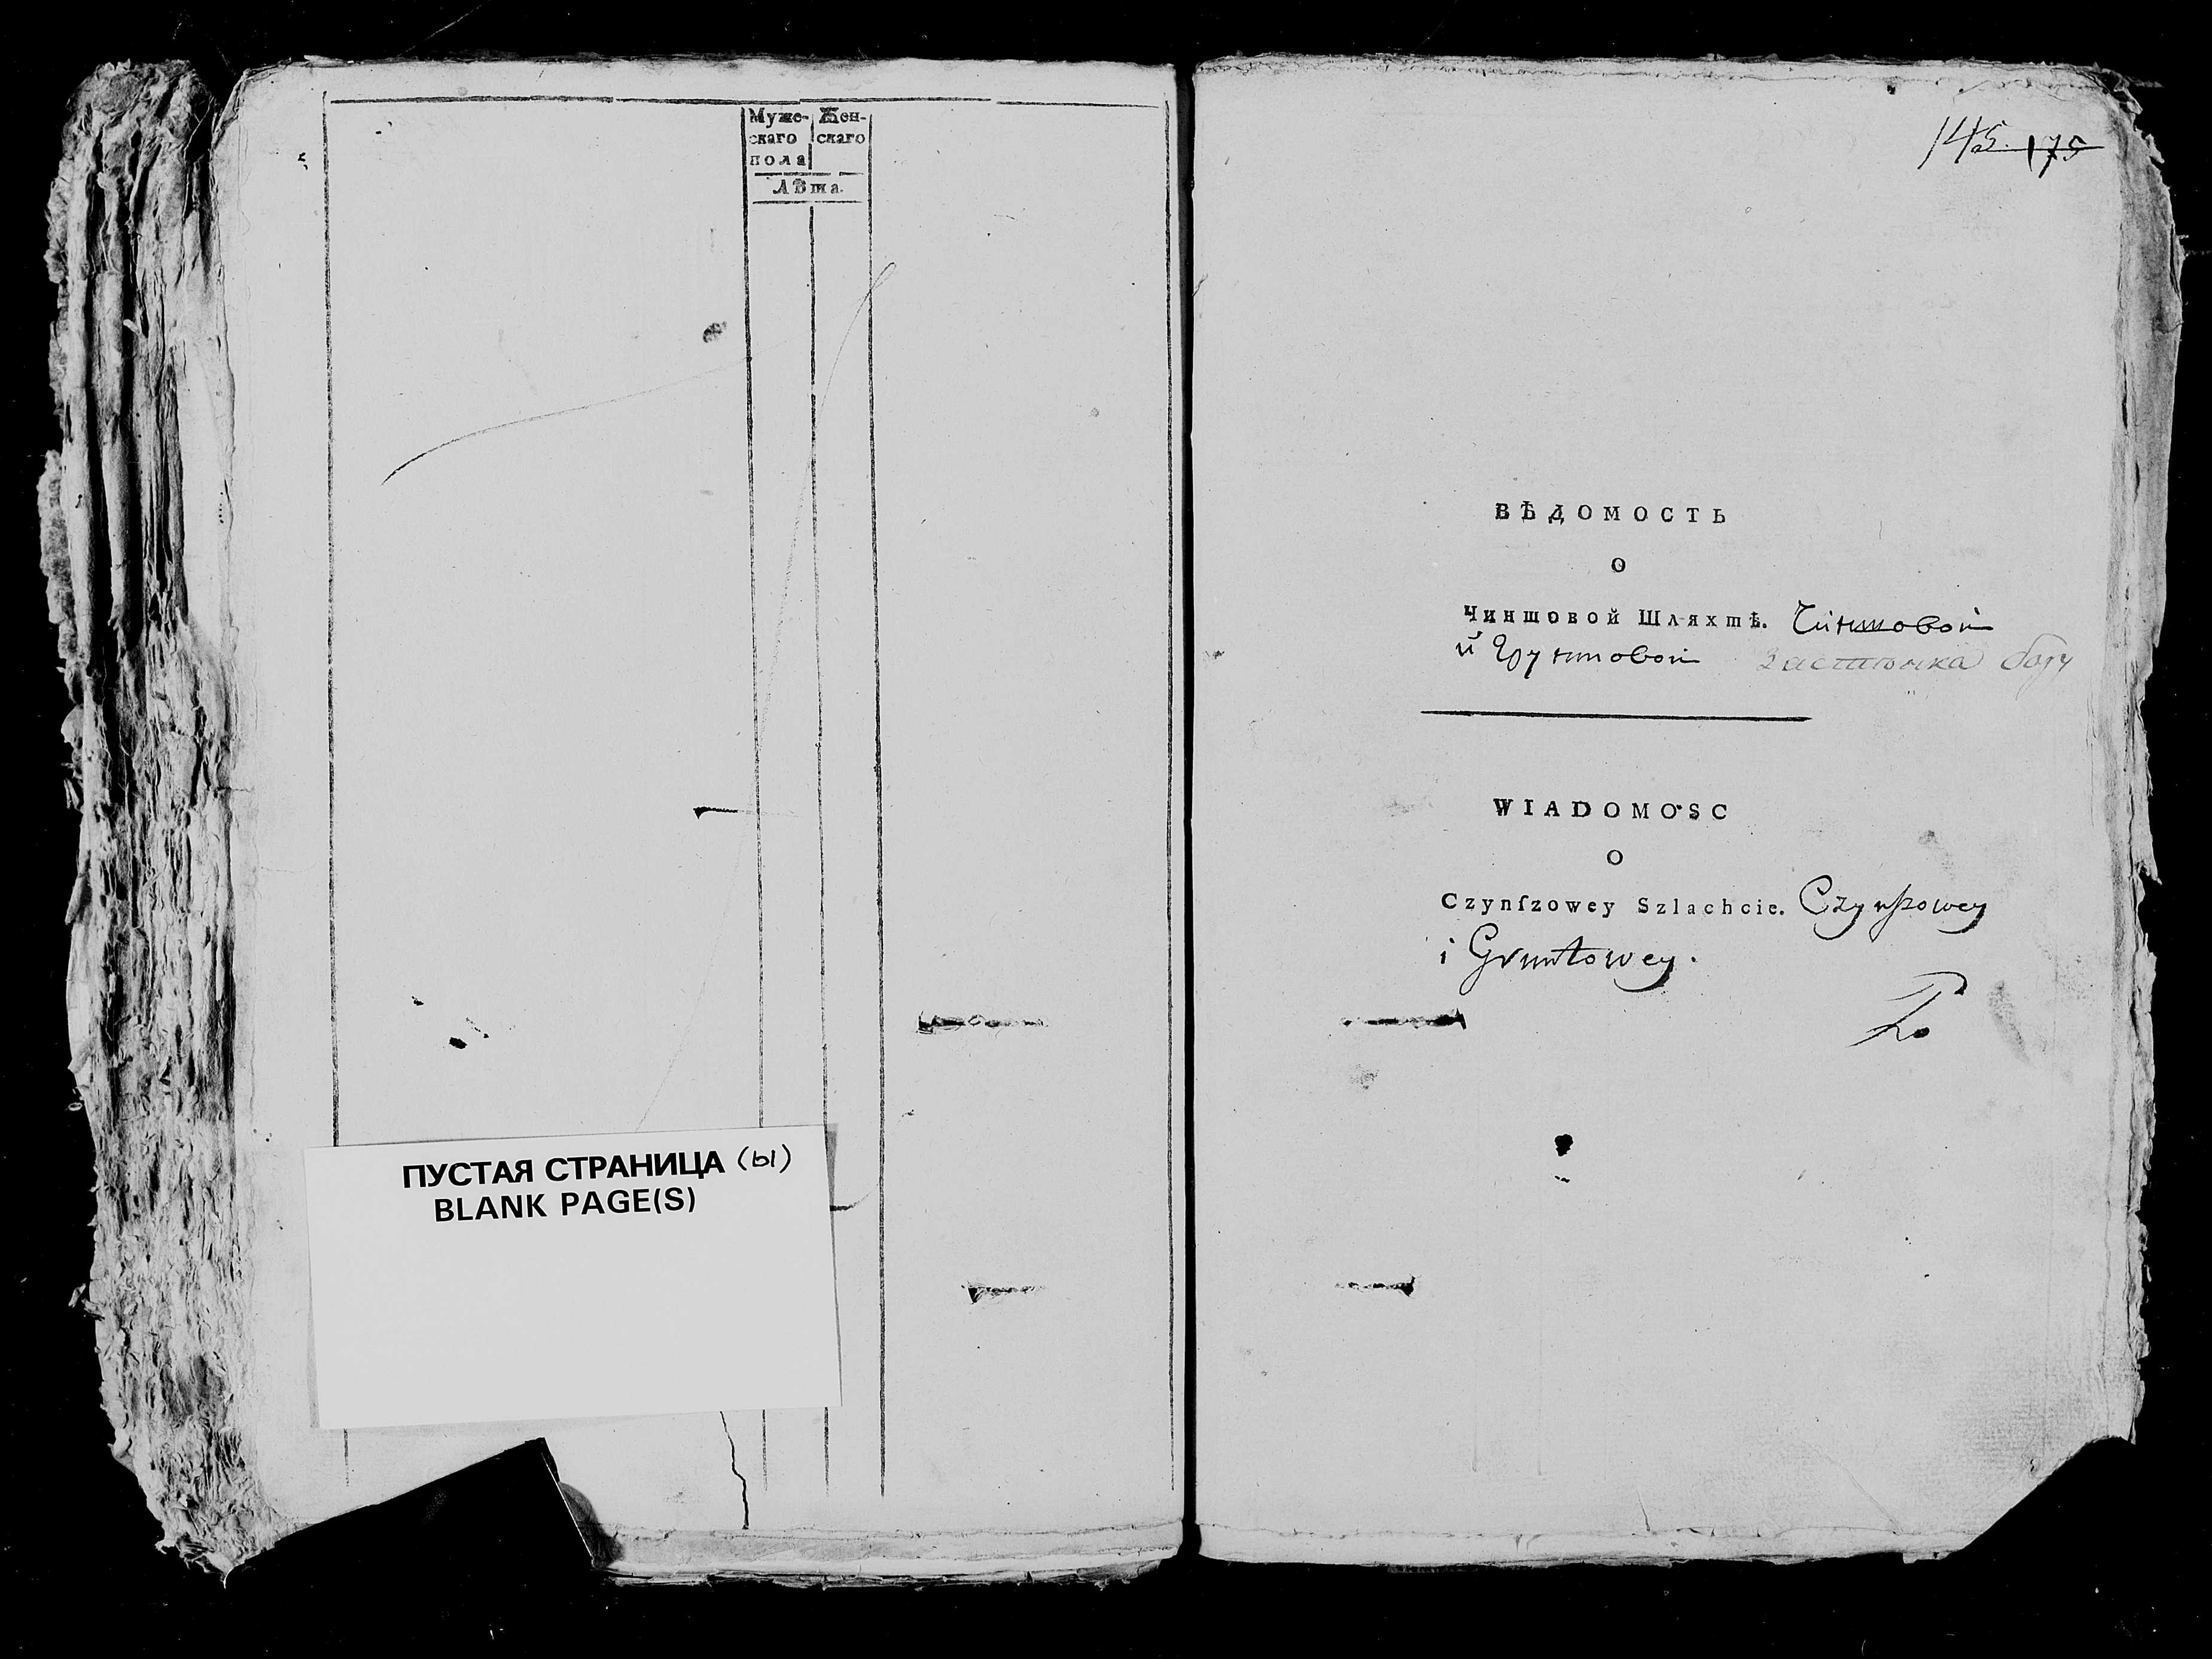 Муже- Жен-
скаго скаго
пола
Лѣта.
ПУСТАЯ СТРАНИЦА (ы)
BLANK PAGE(S)
145. 175
ВѢДОМОСТЬ
О
Чиншовой Шляхтѣ. Чиншовой
и Грунтовой Застѣнка
WIADOMOSC
O
Czynſzowey Szlachcie. Czynszowey
i Gruntowey.